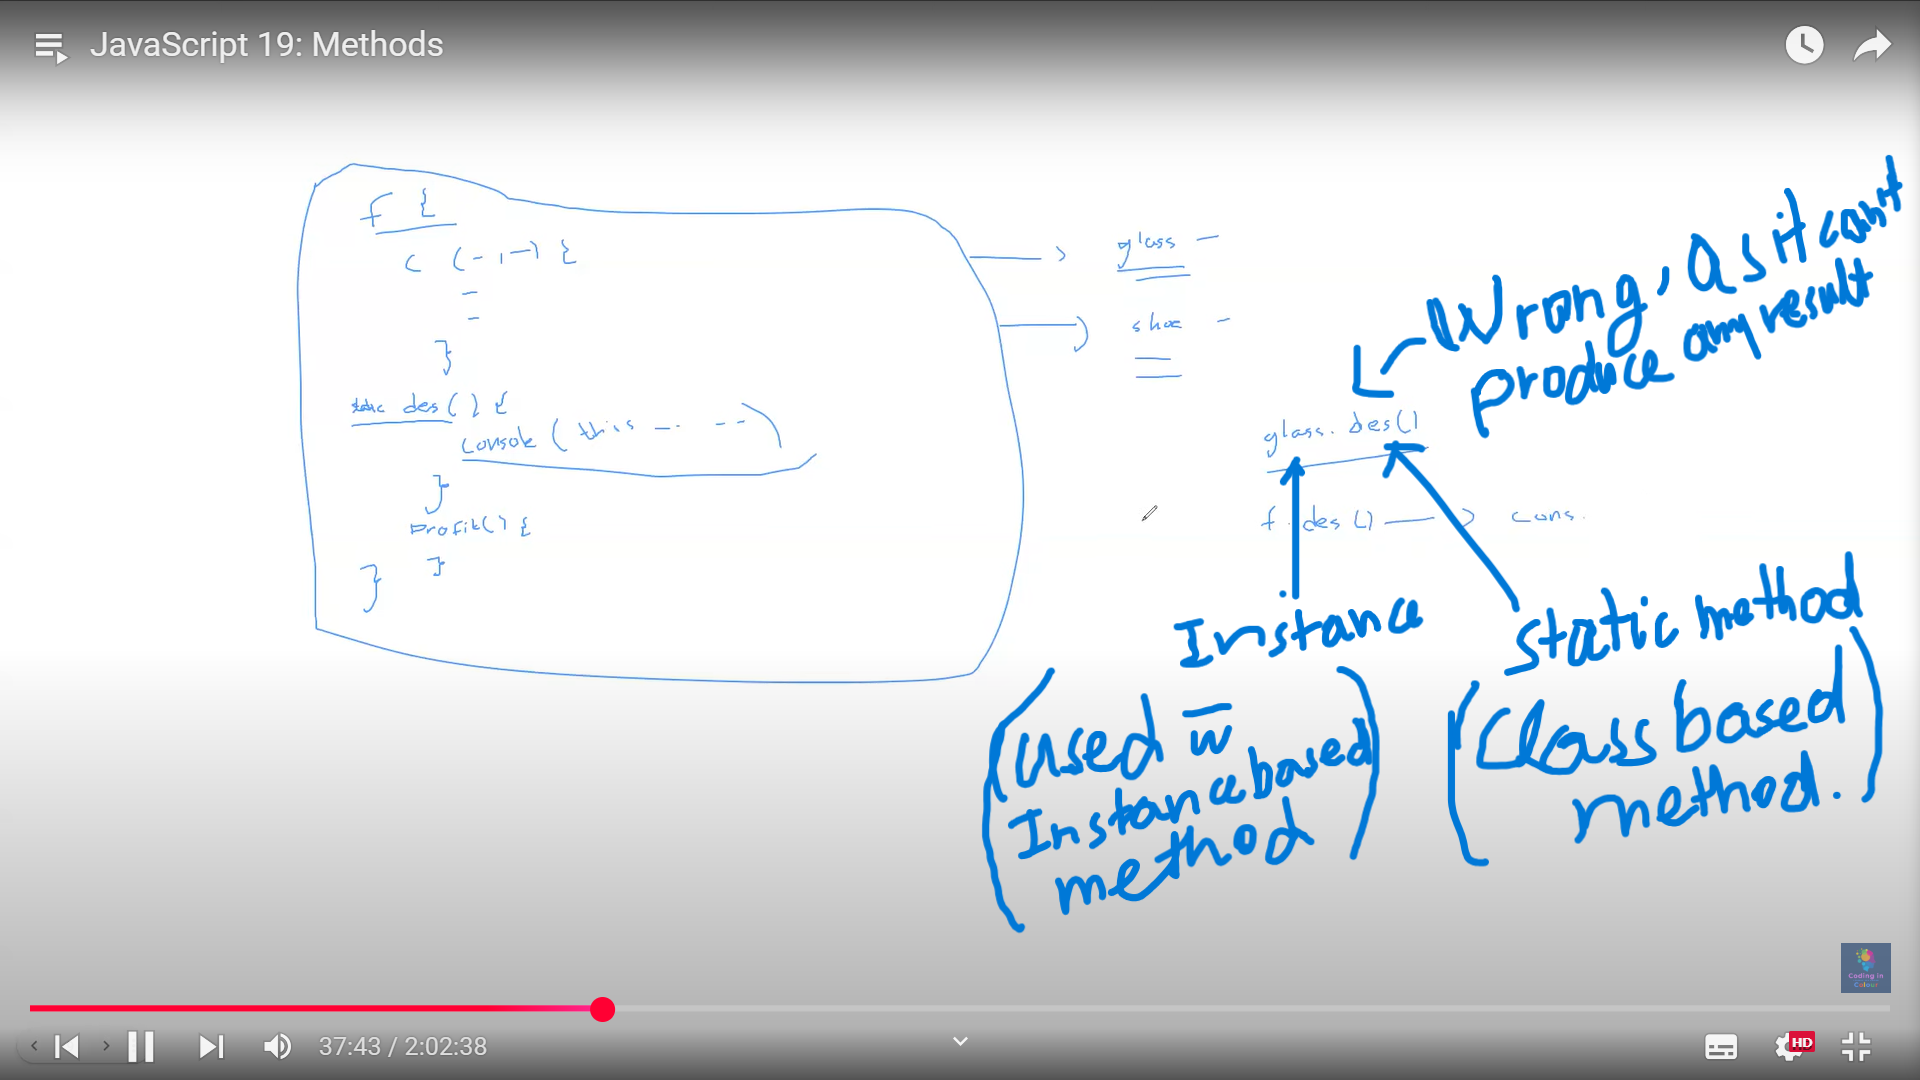 JavaScript 19: Methods
f {
c (-,-) {
}
static des() {
console (this -. --)
}
Profit() {
}
}
glass -
shoe -
Wrong, as it can't
produce any result
glass. des()
f. des() → cons.
Instance
(used w̅
Instance based
method)
Static method
(Class based
method.)
Coding in
Colour
37:43 / 2:02:38
HD